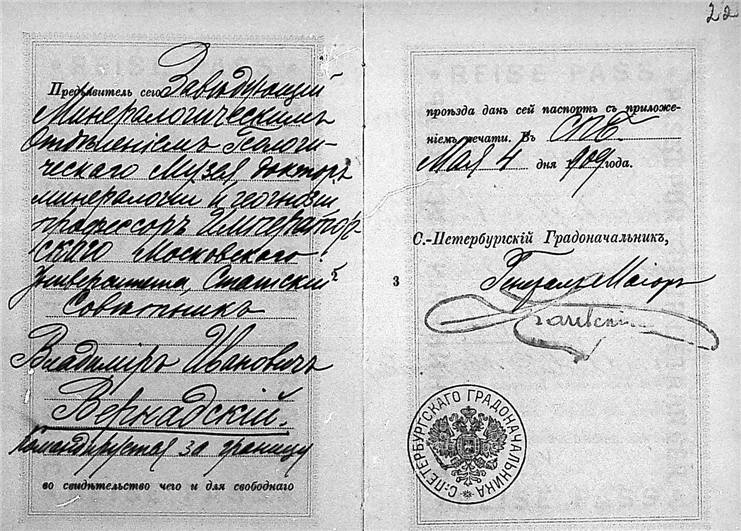 22
REISE PASS
Предъявитель сего Завѣдующій
Минералогическимъ
Отдѣленіемъ Геологи-
ческаго Музея, докторъ
минералогіи и геогнозіи,
профессоръ Император-
скаго Московскаго
Университета, Статскій
Совѣтникъ
Владиміръ Ивановичъ
Вернадскій.
Командируется за границу
во свидѣтельство чего и для свободнаго
REISE PASS
проѣзда данъ сей паспортъ съ приложе-
ніемъ печати. Въ СПБ.
Мая 4 дня 1909 года.
С.-Петербургскій Градоначальникъ,
3
Генералъ-Маіоръ
С.-ПЕТЕРБУРГСКАГО ГРАДОНАЧАЛЬНИКА